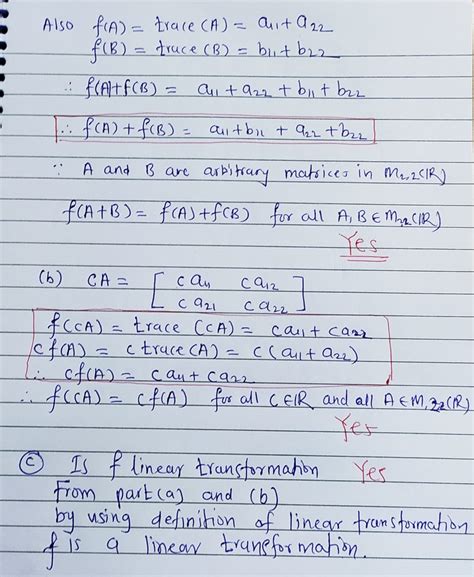 Also f(A) = trace (A) = a11 + a22
f(B) = trace (B) = b11 + b22
∴ f(A)+f(B) = a11 + a22 + b11 + b22
∴ f(A) + f(B) = a11 + b11 + a22 + b22
∵ A and B are arbitrary matrices in M2,2(IR)
f(A+B) = f(A) + f(B) for all A, B ∈ M2,2(IR)
Yes
(b) CA = [ c a11 c a12
c a21 c a22 ]
f(CA) = trace (CA) = ca11 + ca22
cf(A) = c trace (A) = c (a11 + a22)
∴ cf(A) = c a11 + c a22
∴ f(CA) = cf(A) for all C ∈ IR and all A ∈ M2,2(IR)
Yes
(c) Is f linear transformation Yes
From part (a) and (b)
by using definition of linear transformation
f is a linear transformation.